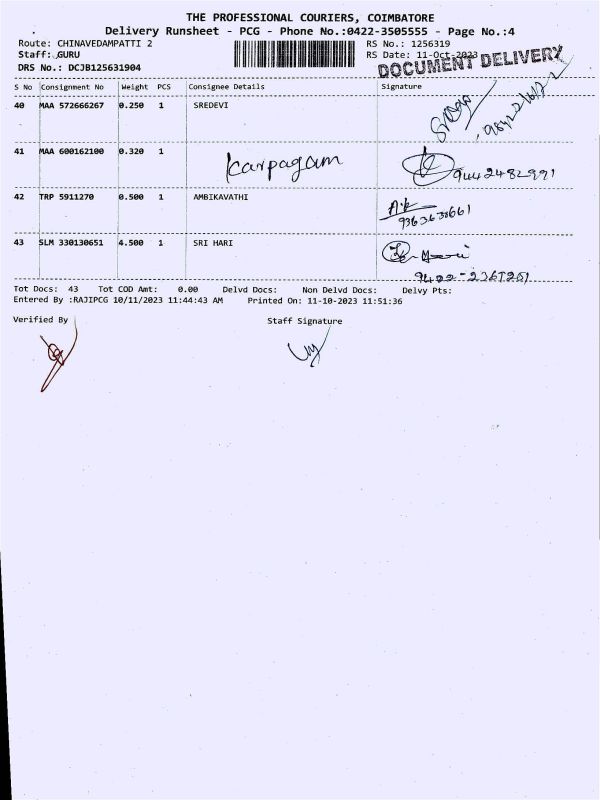 THE PROFESSIONAL COURIERS, COIMBATORE
Delivery Runsheet - PCG - Phone No.:0422-3505555 - Page No.:4
Route: CHINAVEDAMPATTI 2 RS No.: 1256319
Staff: GURU RS Date: 11-Oct-2023
DRS No.: DCJB125631904 DOCUMENT DELIVERY
S No Consignment No Weight PCS Consignee Details Signature
40 MAA 572666267 0.250 1 SREDEVI
41 MAA 600162100 0.320 1 Karpagam 9442482991
42 TRP 5911270 0.500 1 AMBIKAVATHI
9363638661
43 SLM 330130651 4.500 1 SRI HARI
Tot Docs: 43 Tot COD Amt: 0.00 Delvd Docs: Non Delvd Docs: Delvy Pts:
Entered By :RAJIPCG 10/11/2023 11:44:43 AM Printed On: 11-10-2023 11:51:36
Verified By Staff Signature